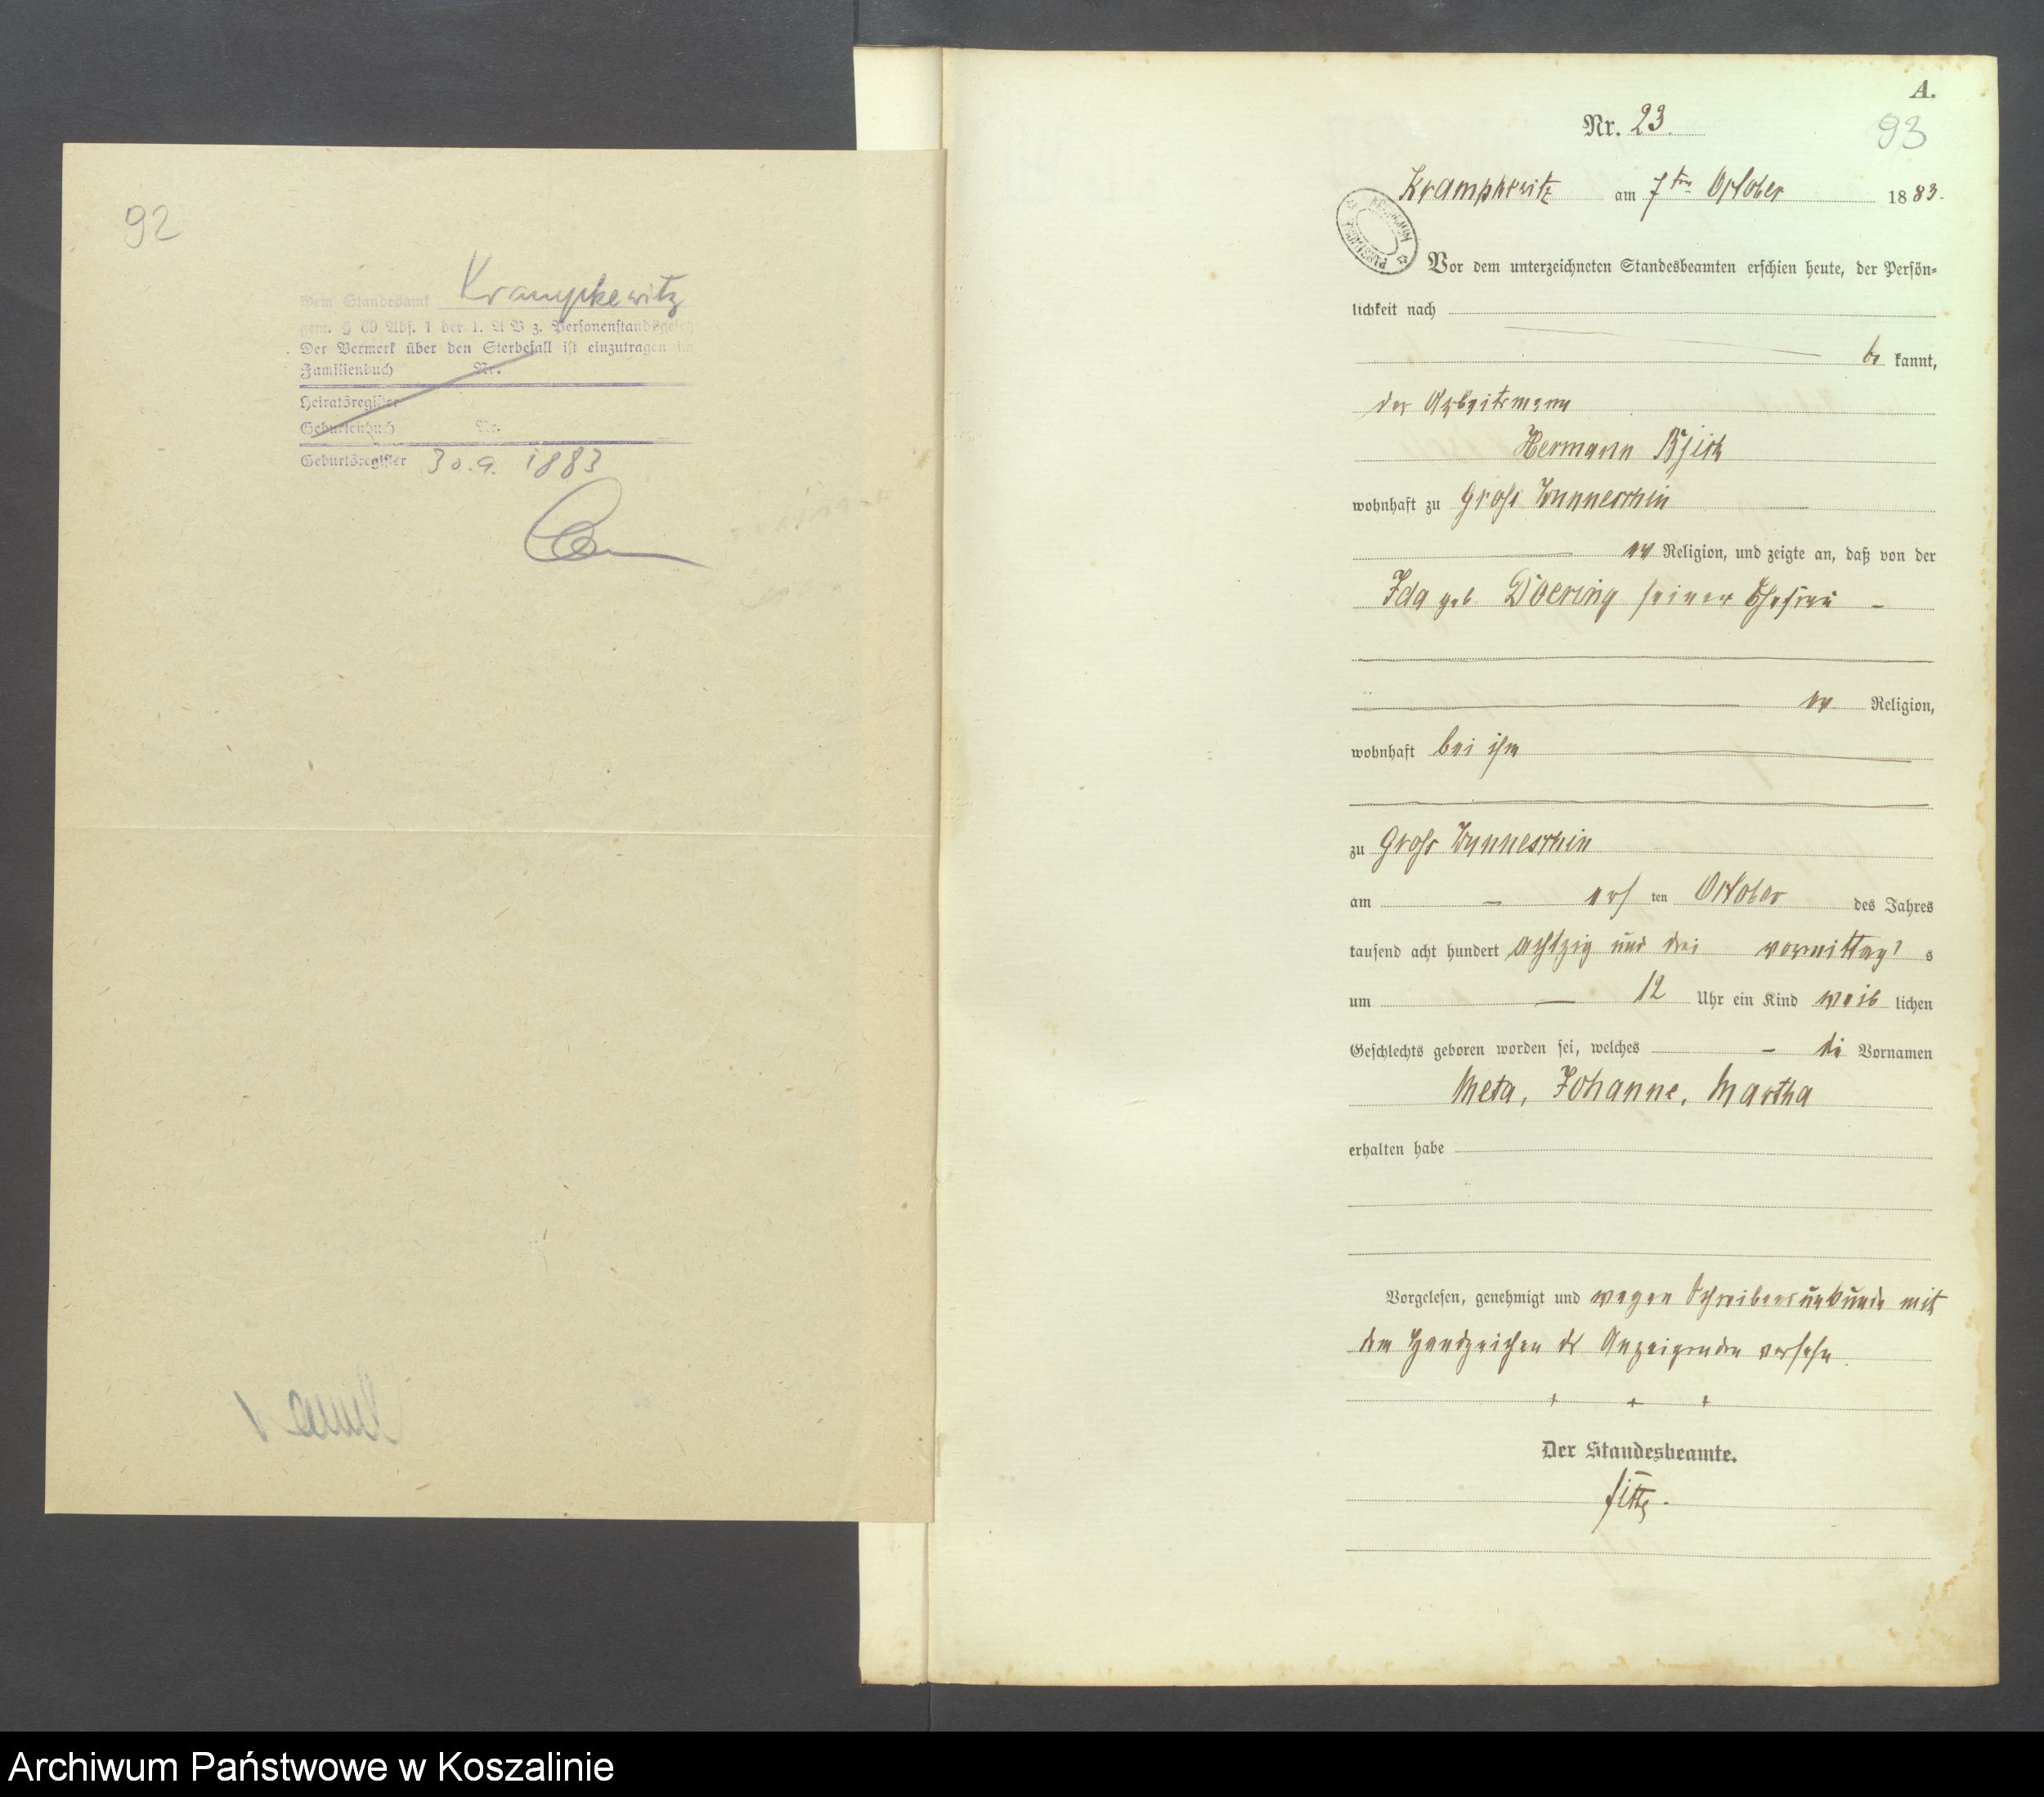 92
Dem Standesamt Krampkewitz
gem. § 60 Abs. 1 der 1. A V z. Personenstandsgesetz
Der Vermerk über den Sterbefall ist einzutragen im
Familienbuch Nr.
Heiratsregister
Geburtenbuch Nr.
Geburtsregister 30.9. 1883
A.
Nr. 23.
93
Krampkewitz am 7ten October 1883.
Vor dem unterzeichneten Standesbeamten erschien heute, der Persön=
lichkeit nach
be kannt,
der Arbeitsmann
Hermann
wohnhaft zu Groß Wunneschin
ev Religion, und zeigte an, daß von der
Ida geb. Doering seiner Ehefrau
ev Religion,
wohnhaft bei ihm
zu Groß Wunneschin
am ersten October des Jahres
tausend acht hundert achtzig und drei vormittags
um 12 Uhr ein Kind weiblichen
Geschlechts geboren worden sei, welches die Vornamen
Meta, Johanne, Martha
erhalten habe
Vorgelesen, genehmigt und wegen Schreibensunkunde mit
dem Handzeichen des Anzeigenden versehn.
+ + +
Der Standesbeamte.
Archiwum Państwowe w Koszalinie